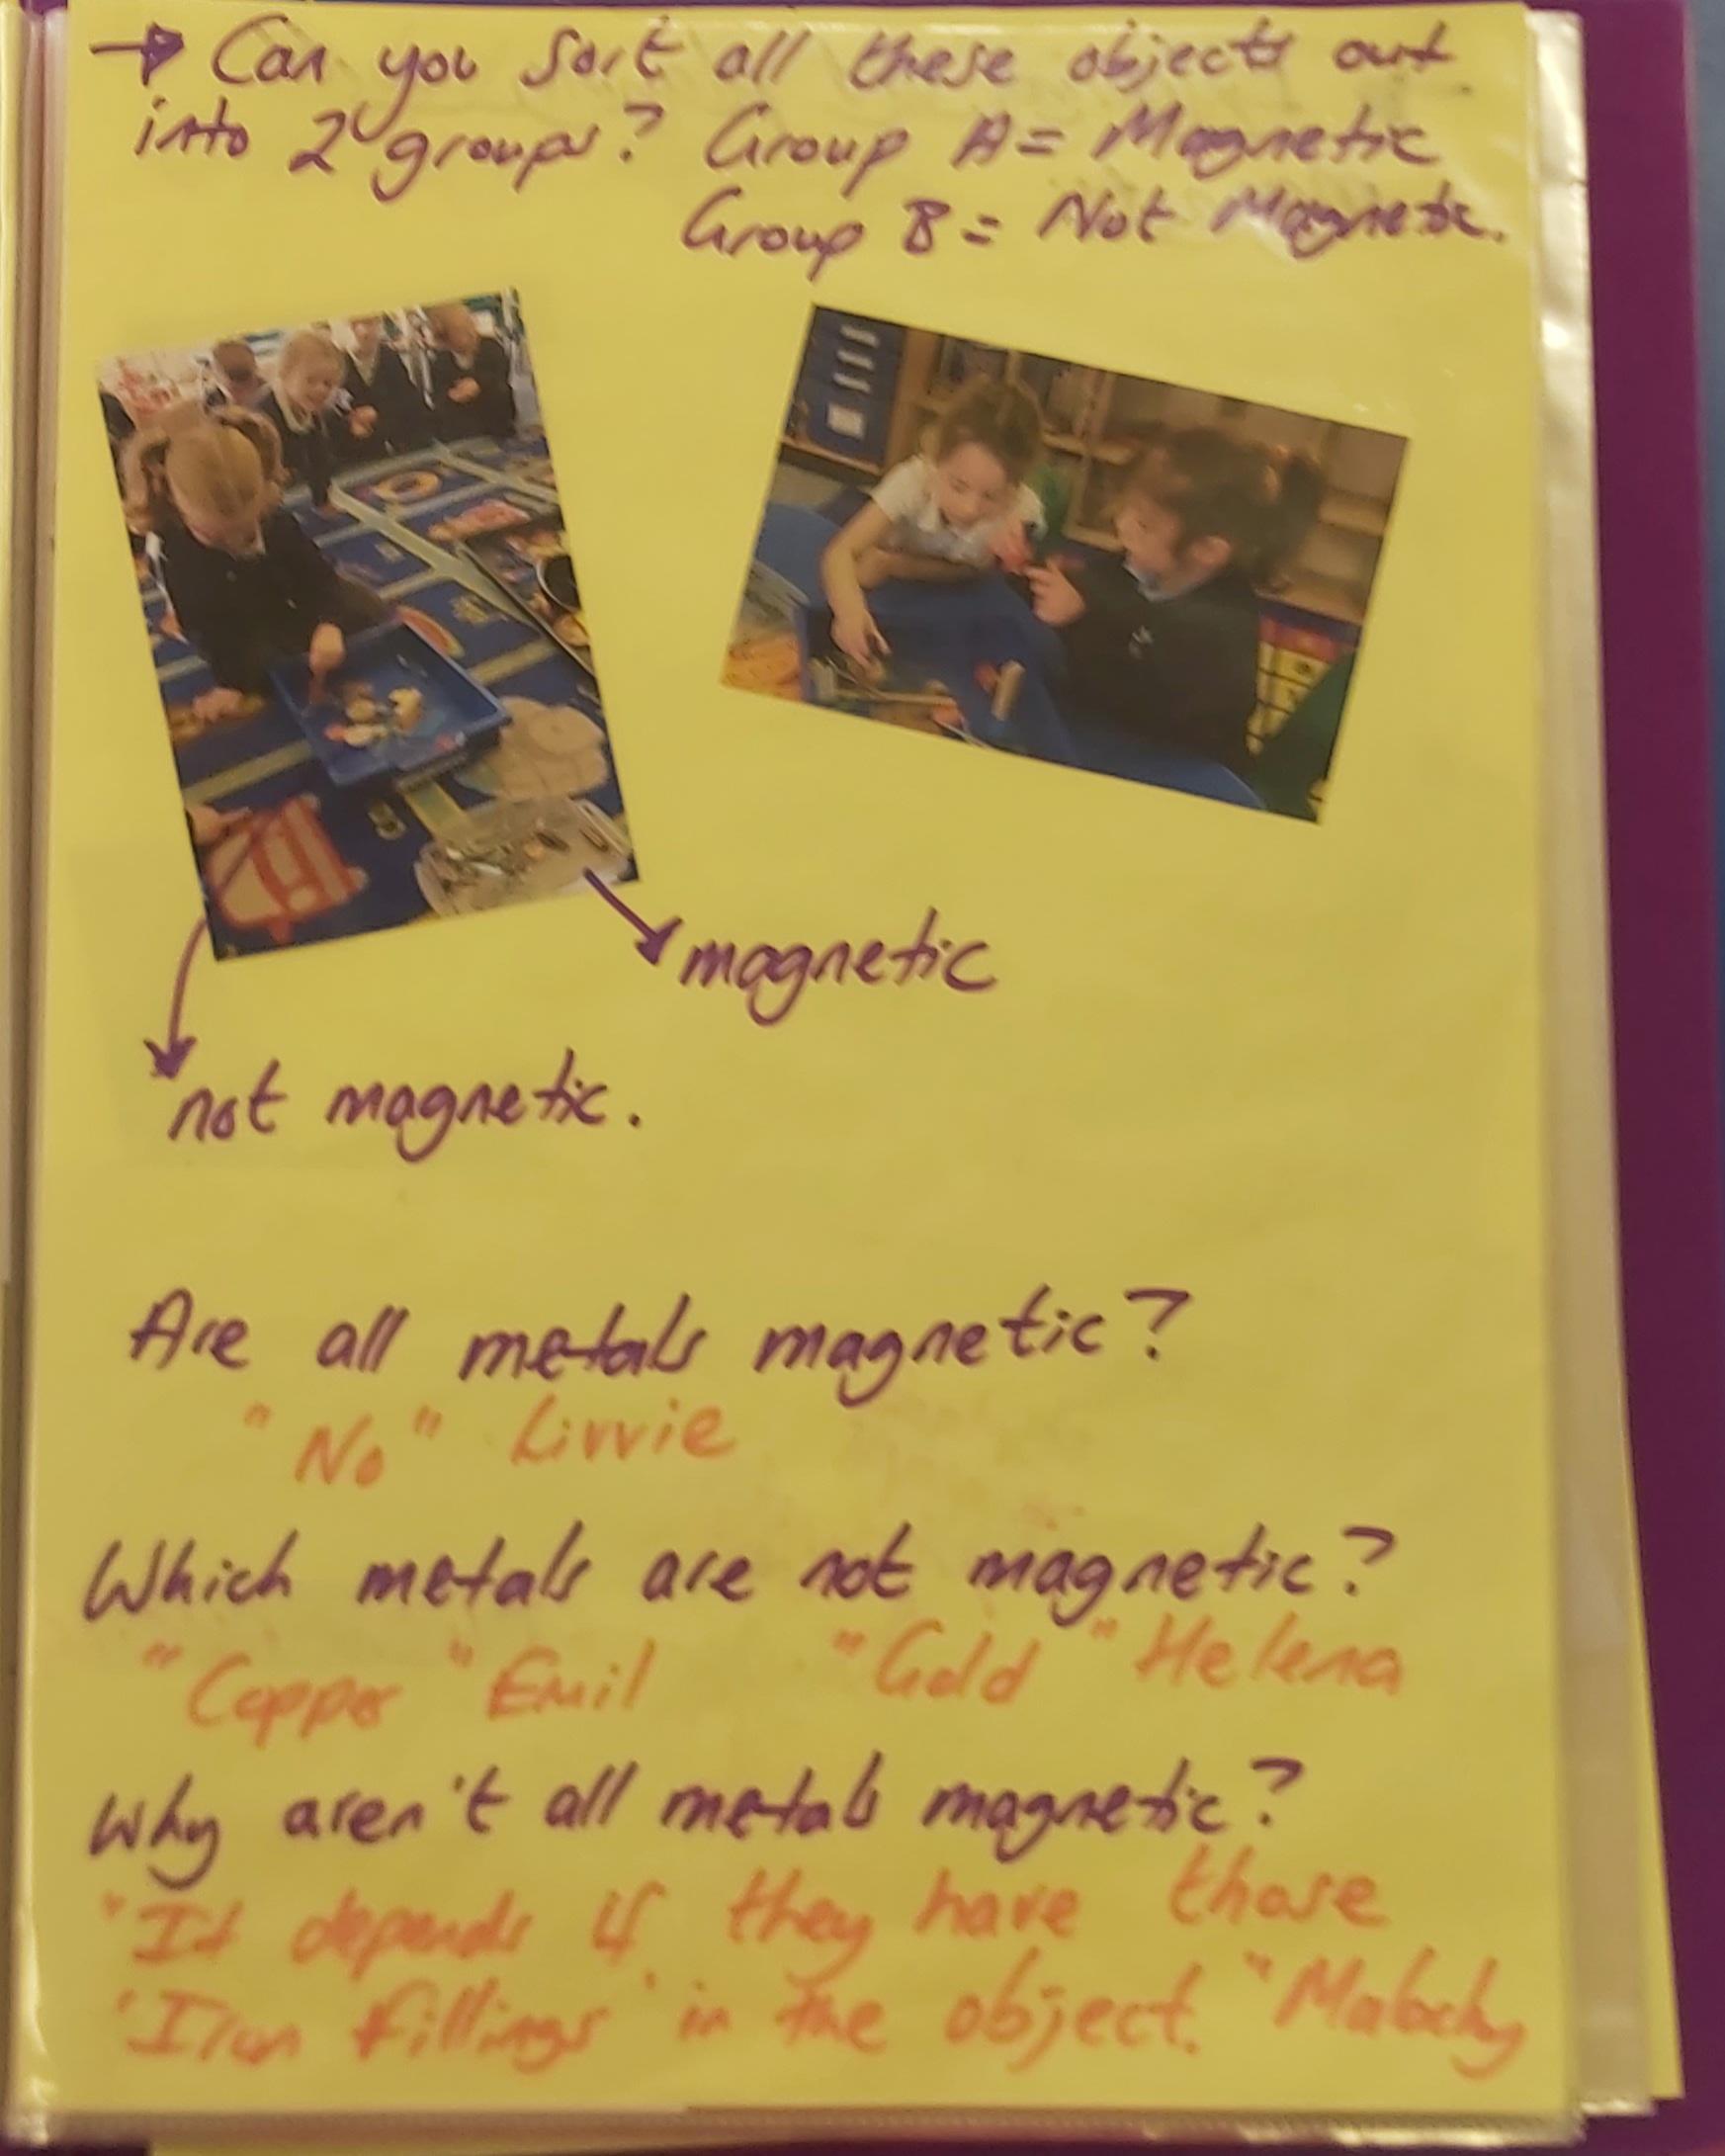 → Can you sort all these objects out
into 2 groups? Group A = Magnetic
Group B = Not Magnetic.
magnetic
not magnetic.
Are all metals magnetic?
"No" Livvie
Which metals are not magnetic?
"Copper" Emil "Gold" Helena
Why aren't all metals magnetic?
"It depends if they have those
'Iron fillings' in the object." Malachy